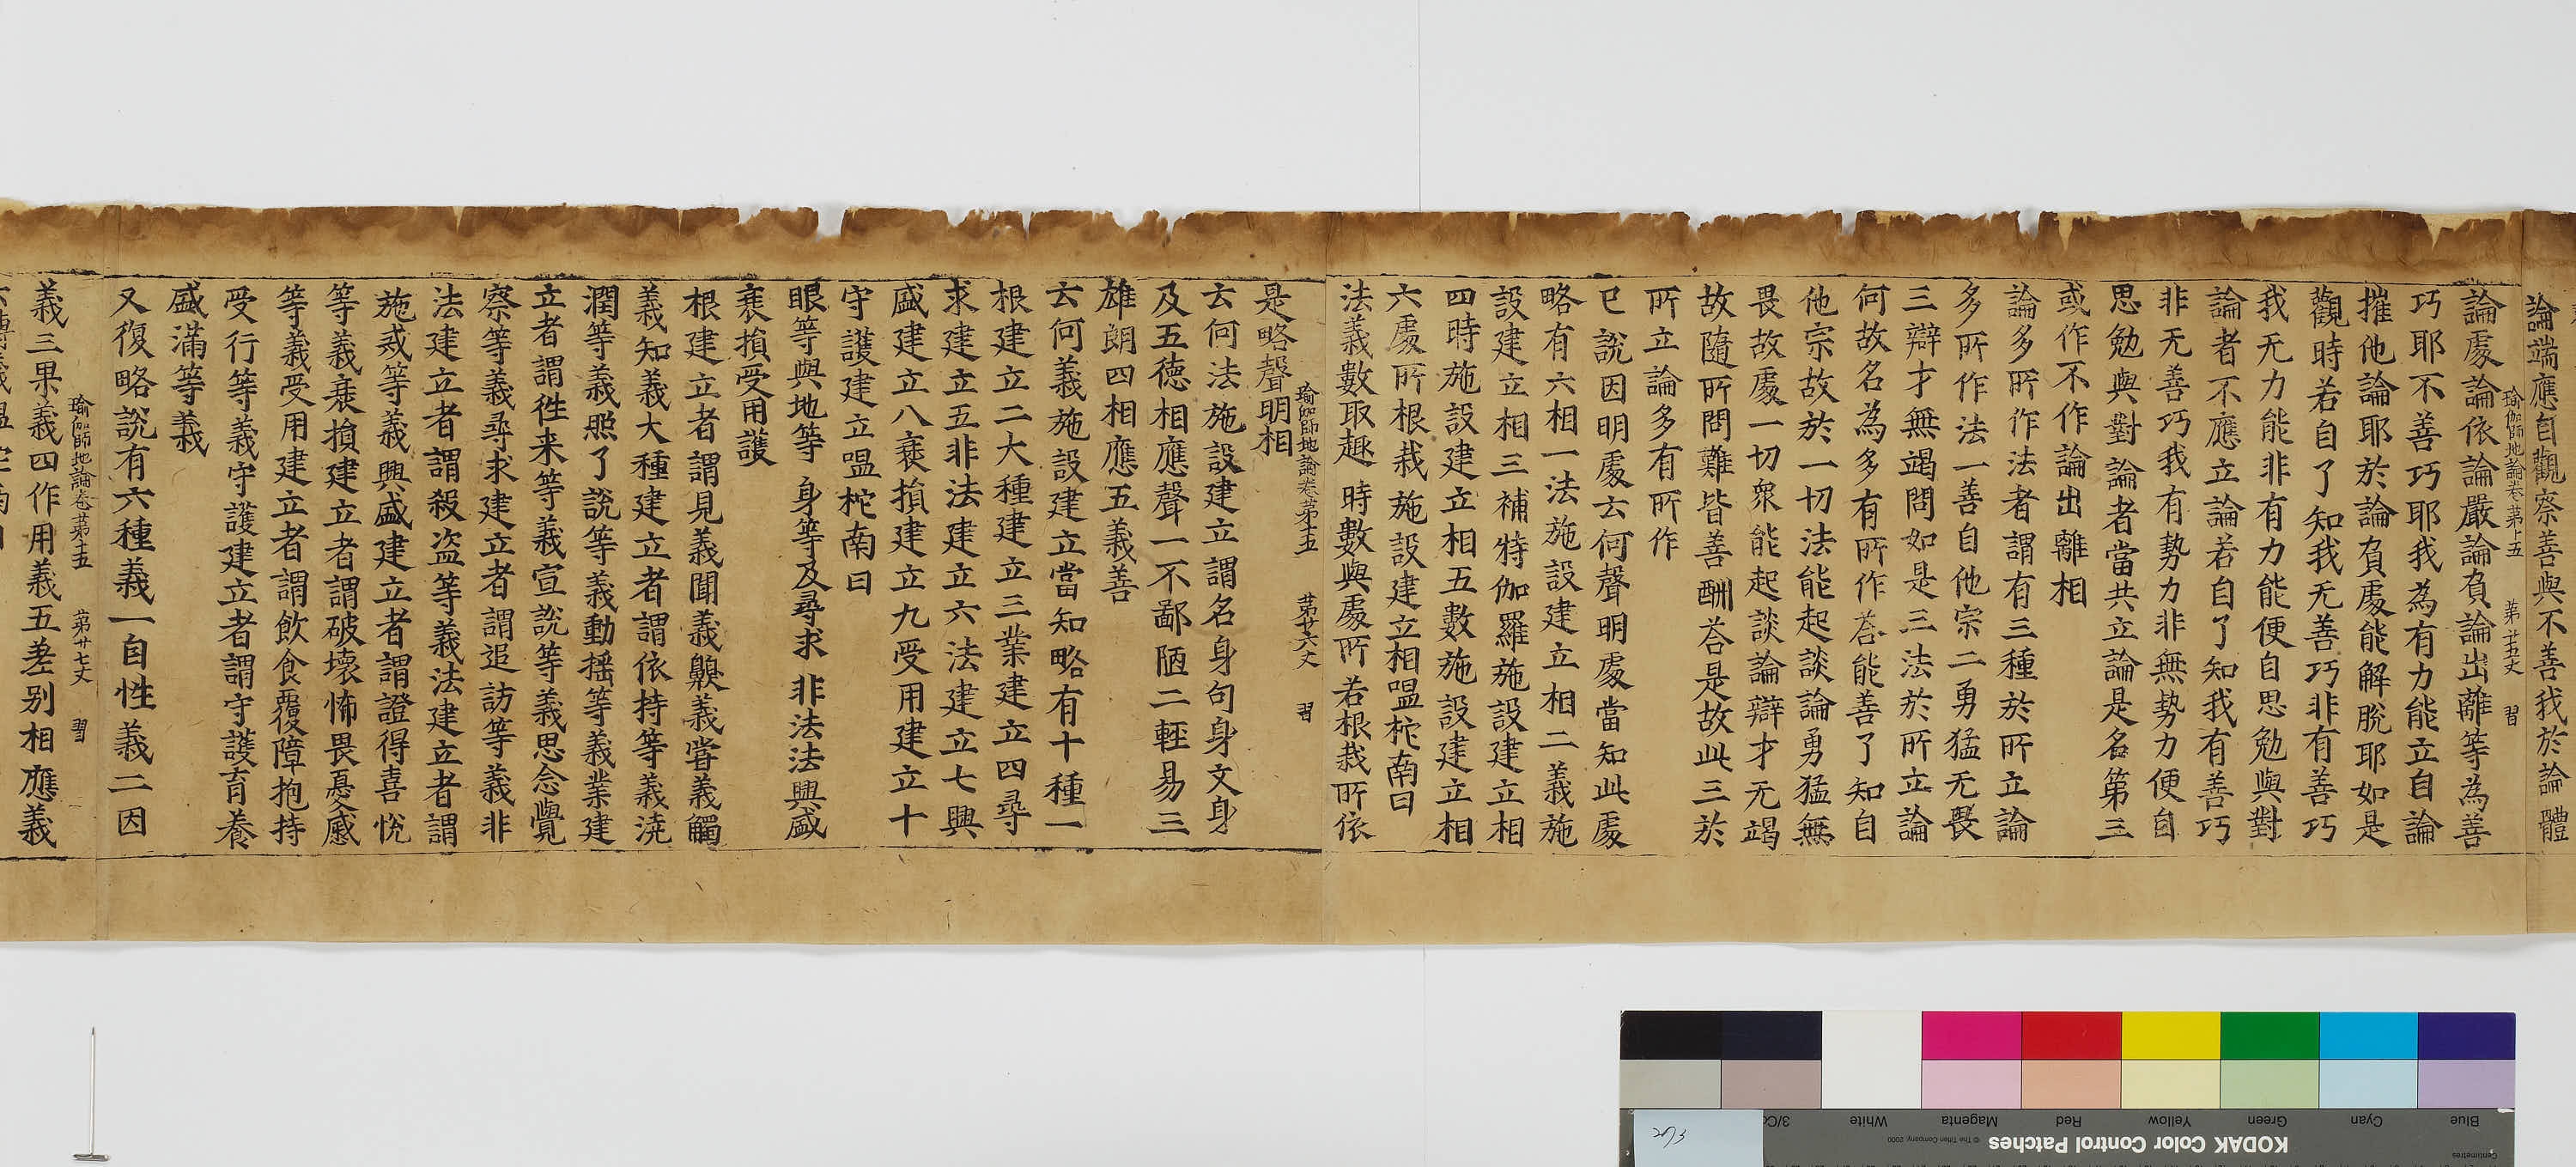 論端應自觀察善與不善我於論體
瑜伽師地論卷第十五　第廿五丈　習
論處論依論嚴論負論出離等為善
巧耶不善巧耶我為有力能立自論
摧他論耶於論負處能解脫耶如是
觀時若自了知我无善巧非有善巧
我无力能非有力能便自思勉與對
論者不應立論若自了知我有善巧
非无善巧我有勢力非無勢力便自
思勉與對論者當共立論是名第三
或作不作論出離相
論多所作法者謂有三種於所立論
多所作法一善自他宗二勇猛无畏
三辯才無竭問如是三法於所立論
何故名為多有所作荅能善了知自
他宗故於一切法能起談論勇猛無
畏故處一切衆能起談論辯才无竭
故隨所問難皆善酬荅是故此三於
所立論多有所作
已說因明處云何聲明處當知此處
略有六相一法施設建立相二義施
設建立相三補特伽羅施設建立相
四時施設建立相五數施設建立相
六處所根栽施設建立相嗢柁南曰
法義數取趣 時數與處所 若根栽所依
瑜伽師地論卷第十五　第廿六丈　習
是略聲明相
云何法施設建立謂名身句身文身
及五德相應聲一不鄙陋二輕易三
雄朗四相應五義善
云何義施設建立當知略有十種一
根建立二大種建立三業建立四尋
求建立五非法建立六法建立七興
盛建立八衰損建立九受用建立十
守護建立嗢柁南曰
眼等與地等 身等及尋求 非法法興盛
衰損受用護
根建立者謂見義聞義齅義甞義觸
義知義大種建立者謂依持等義澆
潤等義照了說等義動搖等義業建
立者謂徃来等義宣說等義思念覺
察等義尋求建立者謂追訪等義非
法建立者謂殺盜等義法建立者謂
施戒等義興盛建立者謂證得喜悅
等義衰損建立者謂破壞怖畏憂慼
等義受用建立者謂飲食覆障抱持
受行等義守護建立者謂守護育養
盛滿等義
又復略說有六種義一自性義二因
瑜伽師地論卷第十五　第廿七丈　習
義三果義四作用義五差别相應義